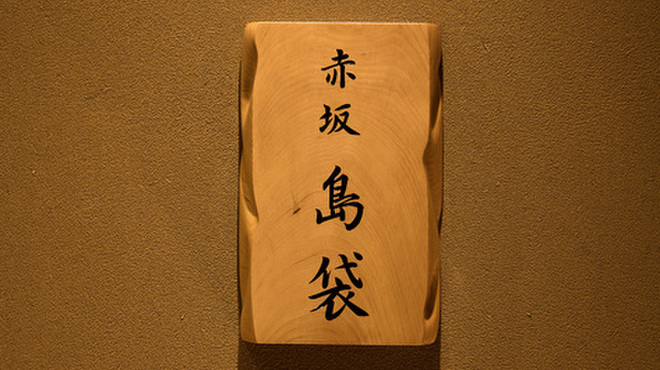 赤坂 島袋